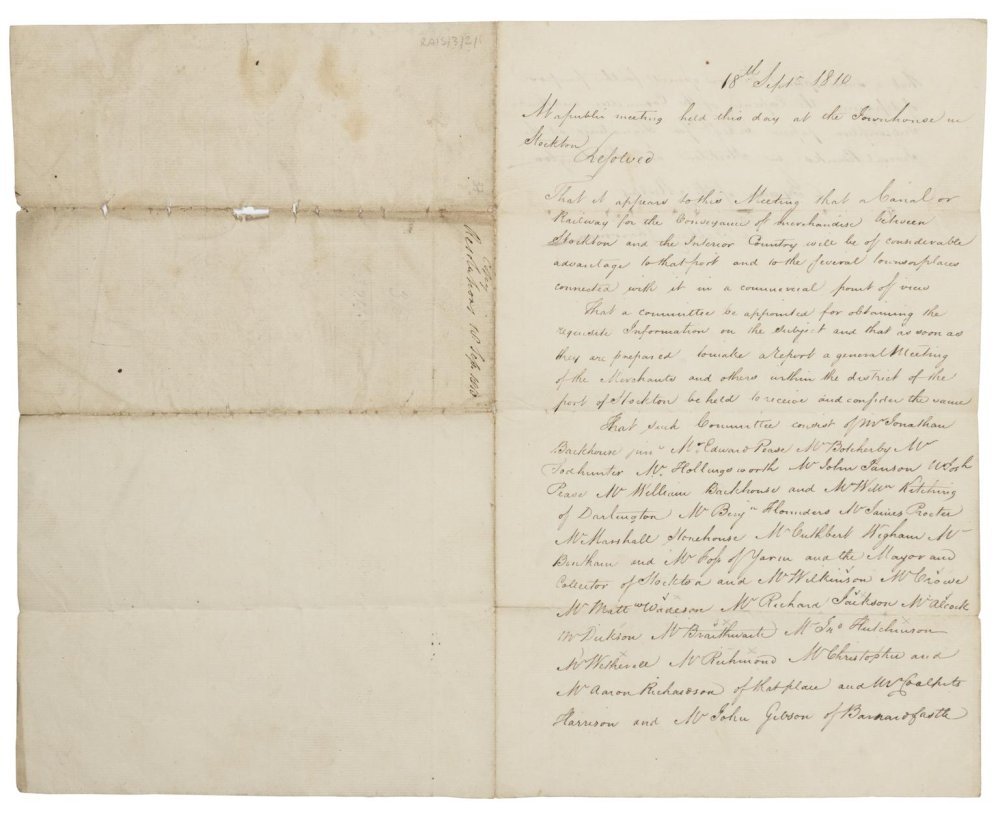 RAIS/3/2/1
Copy
Resolutions 18 Sept 1810
18th Septr 1810
At a public meeting held this day at the Townhouse in
Stockton
Resolved
That it appears to this Meeting that a Canal or
Railway for the Conveyance of merchandise between
Stockton and the Interior Country will be of considerable
advantage to that port and to the several towns or places
connected with it in a commercial point of view
That a committee be appointed for obtaining the
requisite Information on the subject and that as soon as
they are prepared to make a report a general Meeting
of the Merchants and others within the district of the
port of Stockton be held to receive and consider the same
That such Committee consist of Mr Jonathan
Backhouse junr Mr Edward Pease Mr Botcherby Mr
Todhunter Mr Hollingsworth Mr John Janson Mr Josh
Pease Mr William Backhouse and Mr Willm Kitching
of Darlington Mr Benjn Flounders Mr James Procter
Mr Marshall Stonehouse Mr Cuthbert Wigham Mr
Bentham and Mr Cops of Yarm and the Mayor and
Collector of Stockton and Mr Wilkinson Mr Crowe
Mr Mattw Wadeson Mr Richard Jackson Mr Alcock
Mr Dickson Mr Braithwaite Mr Jno Hutchinson
Mr Wetherell Mr Richmond Mr Christopher and
Mr Aaron Richardson of that place and Mr
Harrison and Mr John Gibson of Barnard Castle